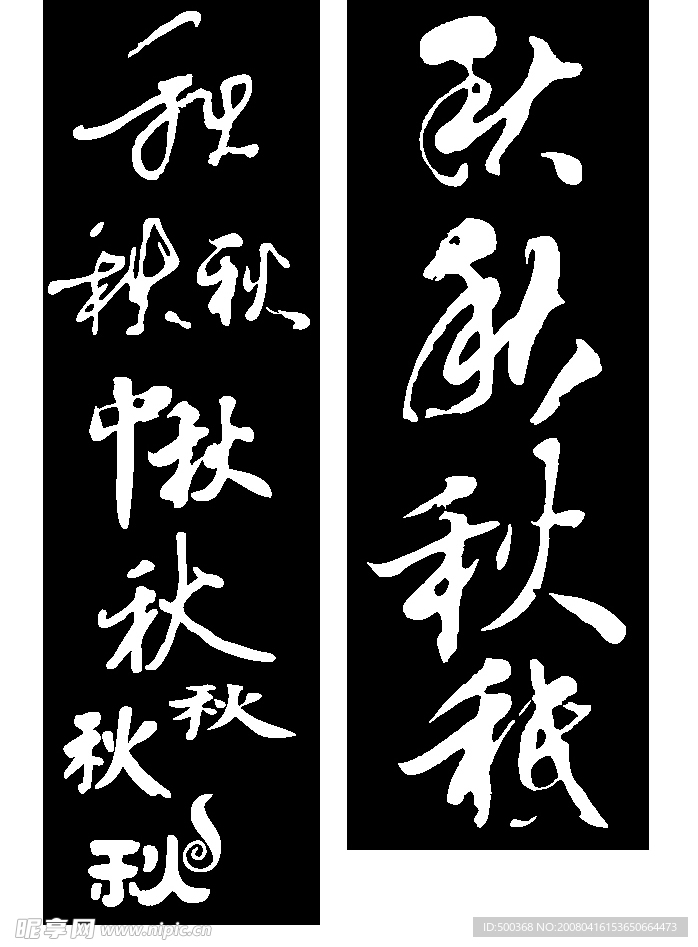 秋
秋 秋
中秋
秋
秋
秋
秋
秋
秋
秋
昵享网 www.nipic.cn
ID:500368 NO:20080416153650664473